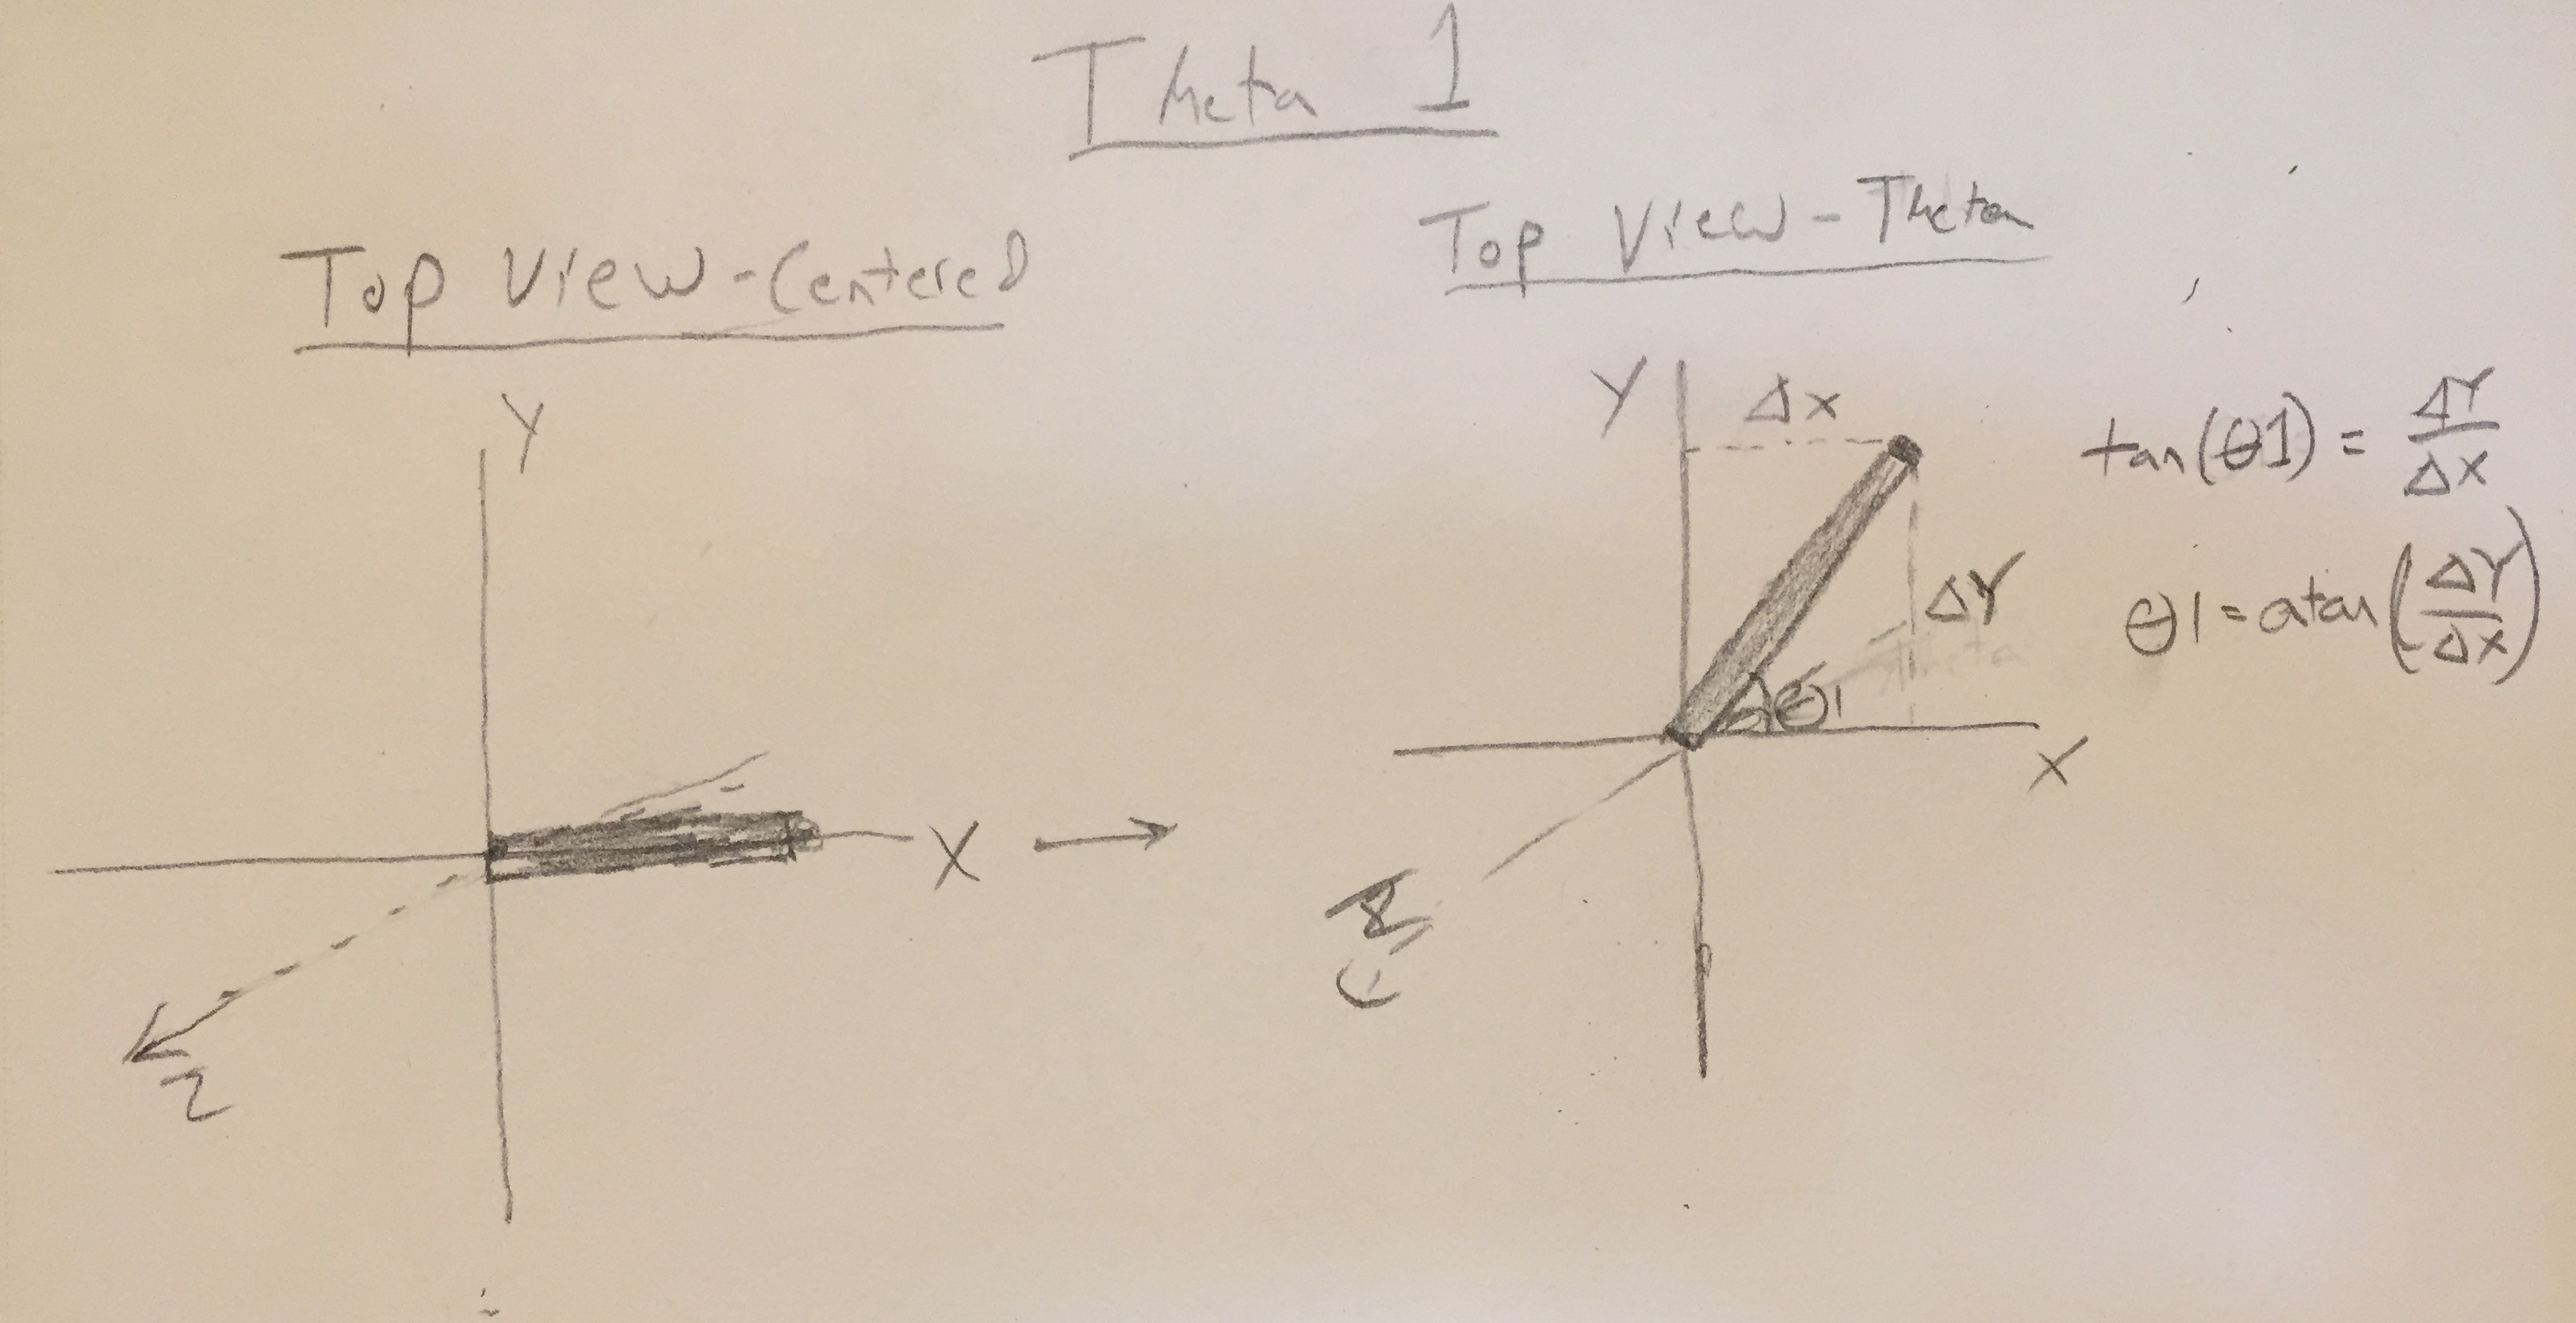 Theta 1
Top View-Centered
Top View-Theta
Y
X
Z
Y
Δx
ΔY
θ1
X
tan(θ1) = ΔY/ΔX
θ1 = atan(ΔY/ΔX)